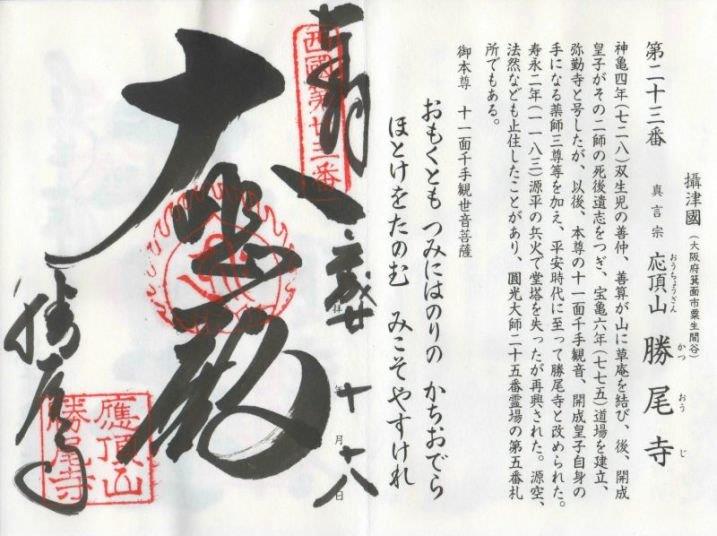 攝津國(大阪府箕面市粟生間谷)
第二十三番 真言宗 応頂山 勝尾寺
おうちょうざん かつ おう じ
神亀四年(七二八)双生児の善仲、善算が山に草庵を結び、後、開成
皇子がその二師の死後遺志をつぎ、宝亀六年(七七五)道場を建立、
弥勒寺と号したが、以後、本尊の十一面千手観音、開成皇子自身の
手になる薬師三尊等を加え、平安時代に至って勝尾寺と改められた。
寿永二年(一一八三)源平の兵火で堂塔を失ったが再興された。源空、
法然なども止住したことがあり、圓光大師二十五番霊場の第五番札
所でもある。
御本尊 十一面千手観世音菩薩
おもくとも つみにはのりの かちおでら
ほとけをたのむ みこそやすけれ
西國第廿三番
奉拝
年十月十八日
大悲殿
勝尾寺
應頂山
勝尾寺